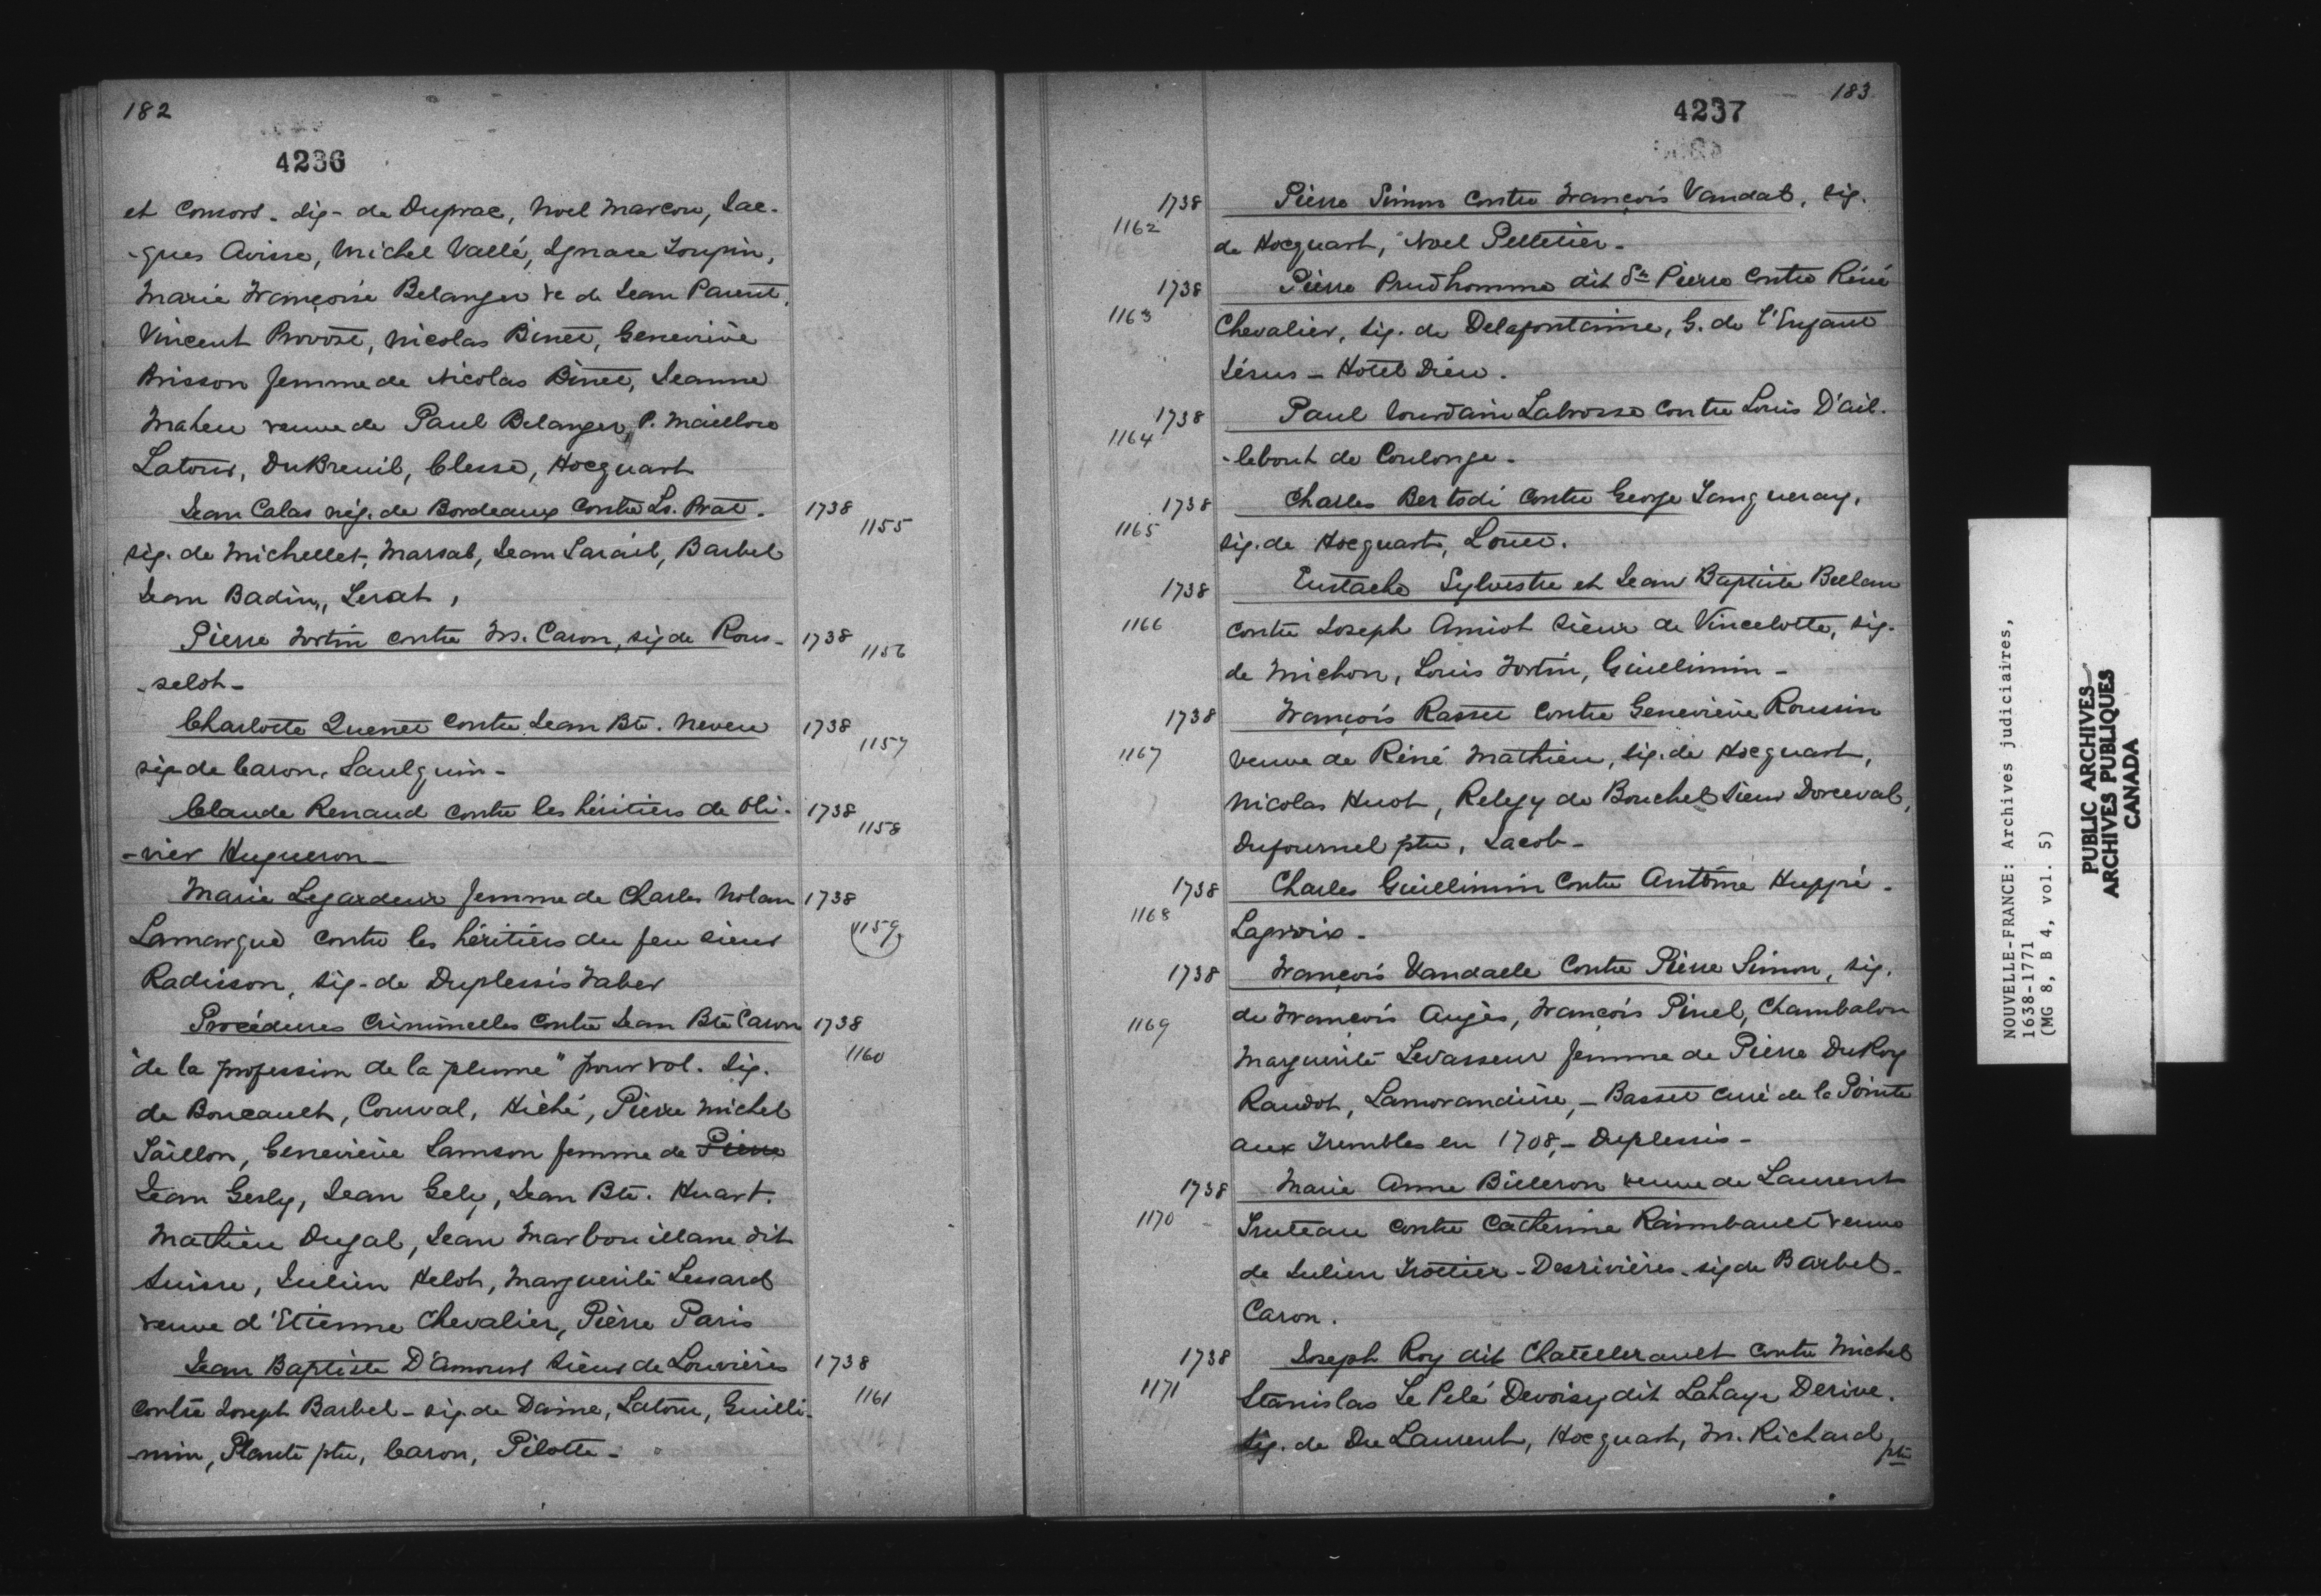 182
4236
et consort. sig- de Duprac, Noel Marcou, Jac-
-ques Avisse, Michel Vallé, Ignace Toupin,
Marie Françoise Belanger ve de Jean Parent,
Vincent Provost, Nicolas Binet, Geneviève
Brisson femme de Nicolas Binet, Jeanne
Maheu veuve de Paul Belanger, P. Maillou
Latour, DuBreuil, Clesse, Hocquart
Jean Calas nég. de Bordeaux contre Ls. Prat. 1738
1155
sig. de Michellet, Marsal, Jean Sarail, Barbel
Jean Badin, Lerat,
Pierre Fortin contre M. Caron, sig de Rous- 1738
1156
-selot-
Charlotte Quenet contre Jean Bte. Neveu 1738
1157
sig de Caron, Saulquin-
Claude Renaud contre les héritiers de Oli- 1738
1158
-vier Hugueron-
Marie Legardeur femme de Charles Nolan 1738
Lamarque contre les héritiers du feu sieur 1159
Radisson, sig- de Duplessis Faber
Procédures Criminelles contre Jean Bte Caron 1738
1160
"de la profession de la plume" pour vol. Sig.
de Boucault, Courval, Hiché, Pierre Michel
Taillon, Geneviève Samson femme de Pierre
Jean Gesly, Jean Gely, Jean Bte. Huart.
Mathieu Dugal, Jean Marbouillane dit
Suisse, Julien Helot, Marguerite Lessard
veuve d'Etienne Chevalier, Pierre Paris
Jean Baptiste D'amours Sieur de Louvières 1738
contre Joseph Barbel - sig. de Daine, Latour, Guilli- 1161
-min, Plante ptre, Caron, Pilotte-
183
4237
1738 Pierre Simon contre François Vandal, sig.
1162
de Hocquart, Noel Pelletier-
1738 Pierre Prudhomme dit St. Pierre contre Réné
1163 Chevalier, sig. de Delafontaine, G. de l'Enfant
Jésus - Hotel Dieu.
1738 Paul Jourdain Labrosse contre Louis D'ail-
1164
-lebout de Coulonge-
1738 Charles Bertodi contre George Langueray,
1165
sig. de Hocquart, Louet.
1738 Eustache Sylvestre et Jean Baptiste
1166 contre Joseph Amiot Sieur de Vincelotte, sig.
de Michon, Louis Fortin, Guillimin-
1738 François Rasset contre Geneviève Roussin
1167 veuve de Réné Mathieu, sig. de Hocquart,
Nicolas Huot, de Bouchel Sieur Dorceval,
Dufournel ptre, Jacob-
1738 Charles Guillimin contre Antoine Huppé-
1168
Lagroix-
1738 François Vandalle contre Pierre Simon, sig.
1169 de François Augès, François Pinel, Chambalon
Marguerite Levasseur femme de Pierre DuRoy
Raudot, Lamorandière, - Basset curé de la Pointe
aux Trembles en 1708, - Duplessis-
1738 Marie Anne Billeron veuve de Laurent
1170 Truteau contre Catherine Raimbault veuve
de Julien Trottier-Desrivières - sig de Barbel-
Caron.
1738 Joseph Roy dit Chatellerault contre Michel
1171 Stanislas Le Pelé Devoisy dit LaHaye Derive.
Sig. de Du Laurent, Hocquart, M. Richard, ptre
NOUVELLE-FRANCE: Archives judiciaires,
1638-1771
(MG 8, B 4, vol. 5)
PUBLIC ARCHIVES
ARCHIVES PUBLIQUES
CANADA